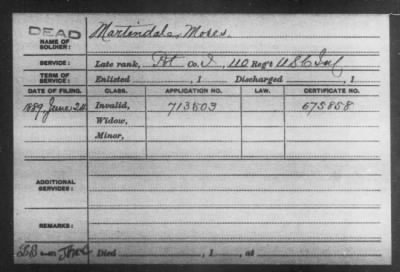 DEAD
NAME OF SOLDIER: Martindale, Moses
SERVICE: Late rank, Pvt Co. I, 40 Reg't U S C Inf
TERM OF SERVICE: Enlisted , 1 Discharged , 1
DATE OF FILING. CLASS. APPLICATION NO. LAW. CERTIFICATE NO.
1889, June 24 Invalid, 713803 675858
Widow,
Minor,
ADDITIONAL SERVICES:
REMARKS:
Died , 1 , at